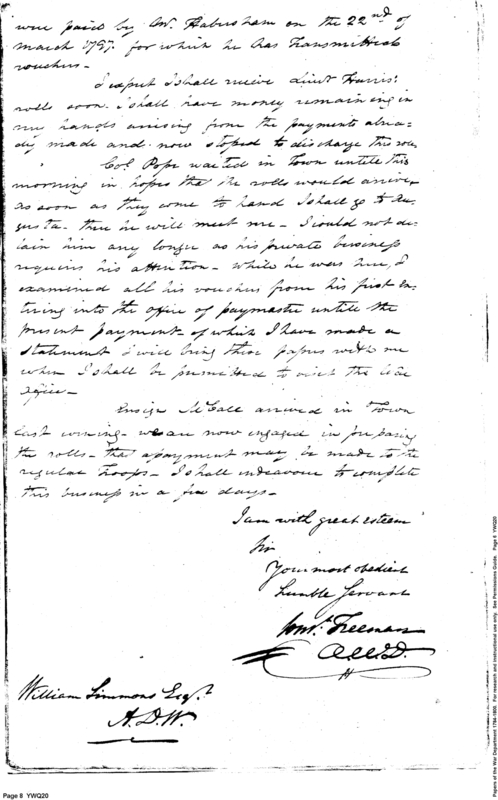 were paid by Mr. Habersham on the 22nd of
March 1797. for which he has Transmitted
vouchers -
I expect I shall receive Lieut Harris's
roll soon. I shall have money remaining in
my hands arising from the payments alrea-
dy made and now stoped to discharge this roll
Col. Pope waited in Town untill this
morning in hopes that the rolls would arrive,
as soon as they come to hand I shall go to Au-
gusta - there he will meet me - I could not de-
tain him any longer as his private business
requires his attention - while he was here, I
examined all his vouchers from his first en-
tering into the office of paymaster untill the
present payment - of which I have made a
statement I will bring these papers with me
when I shall be permitted to visit the
Ensign McCall arrived in Town
last evening - we are now engaged in preparing
the rolls - that a payment may be made to the
regular Troops - I shall endeavour to complete
this business in a few days -
I am with great esteem
Sir
Your most obedient
humble Servant
Const. Freeman
A.W.D.
William Simmons Esqr.
A.D.W.
Page 8 YWQ20
Papers of the War Department 1784-1800. For research and instructional use only. See Permissions Guide. Page 8 YWQ20